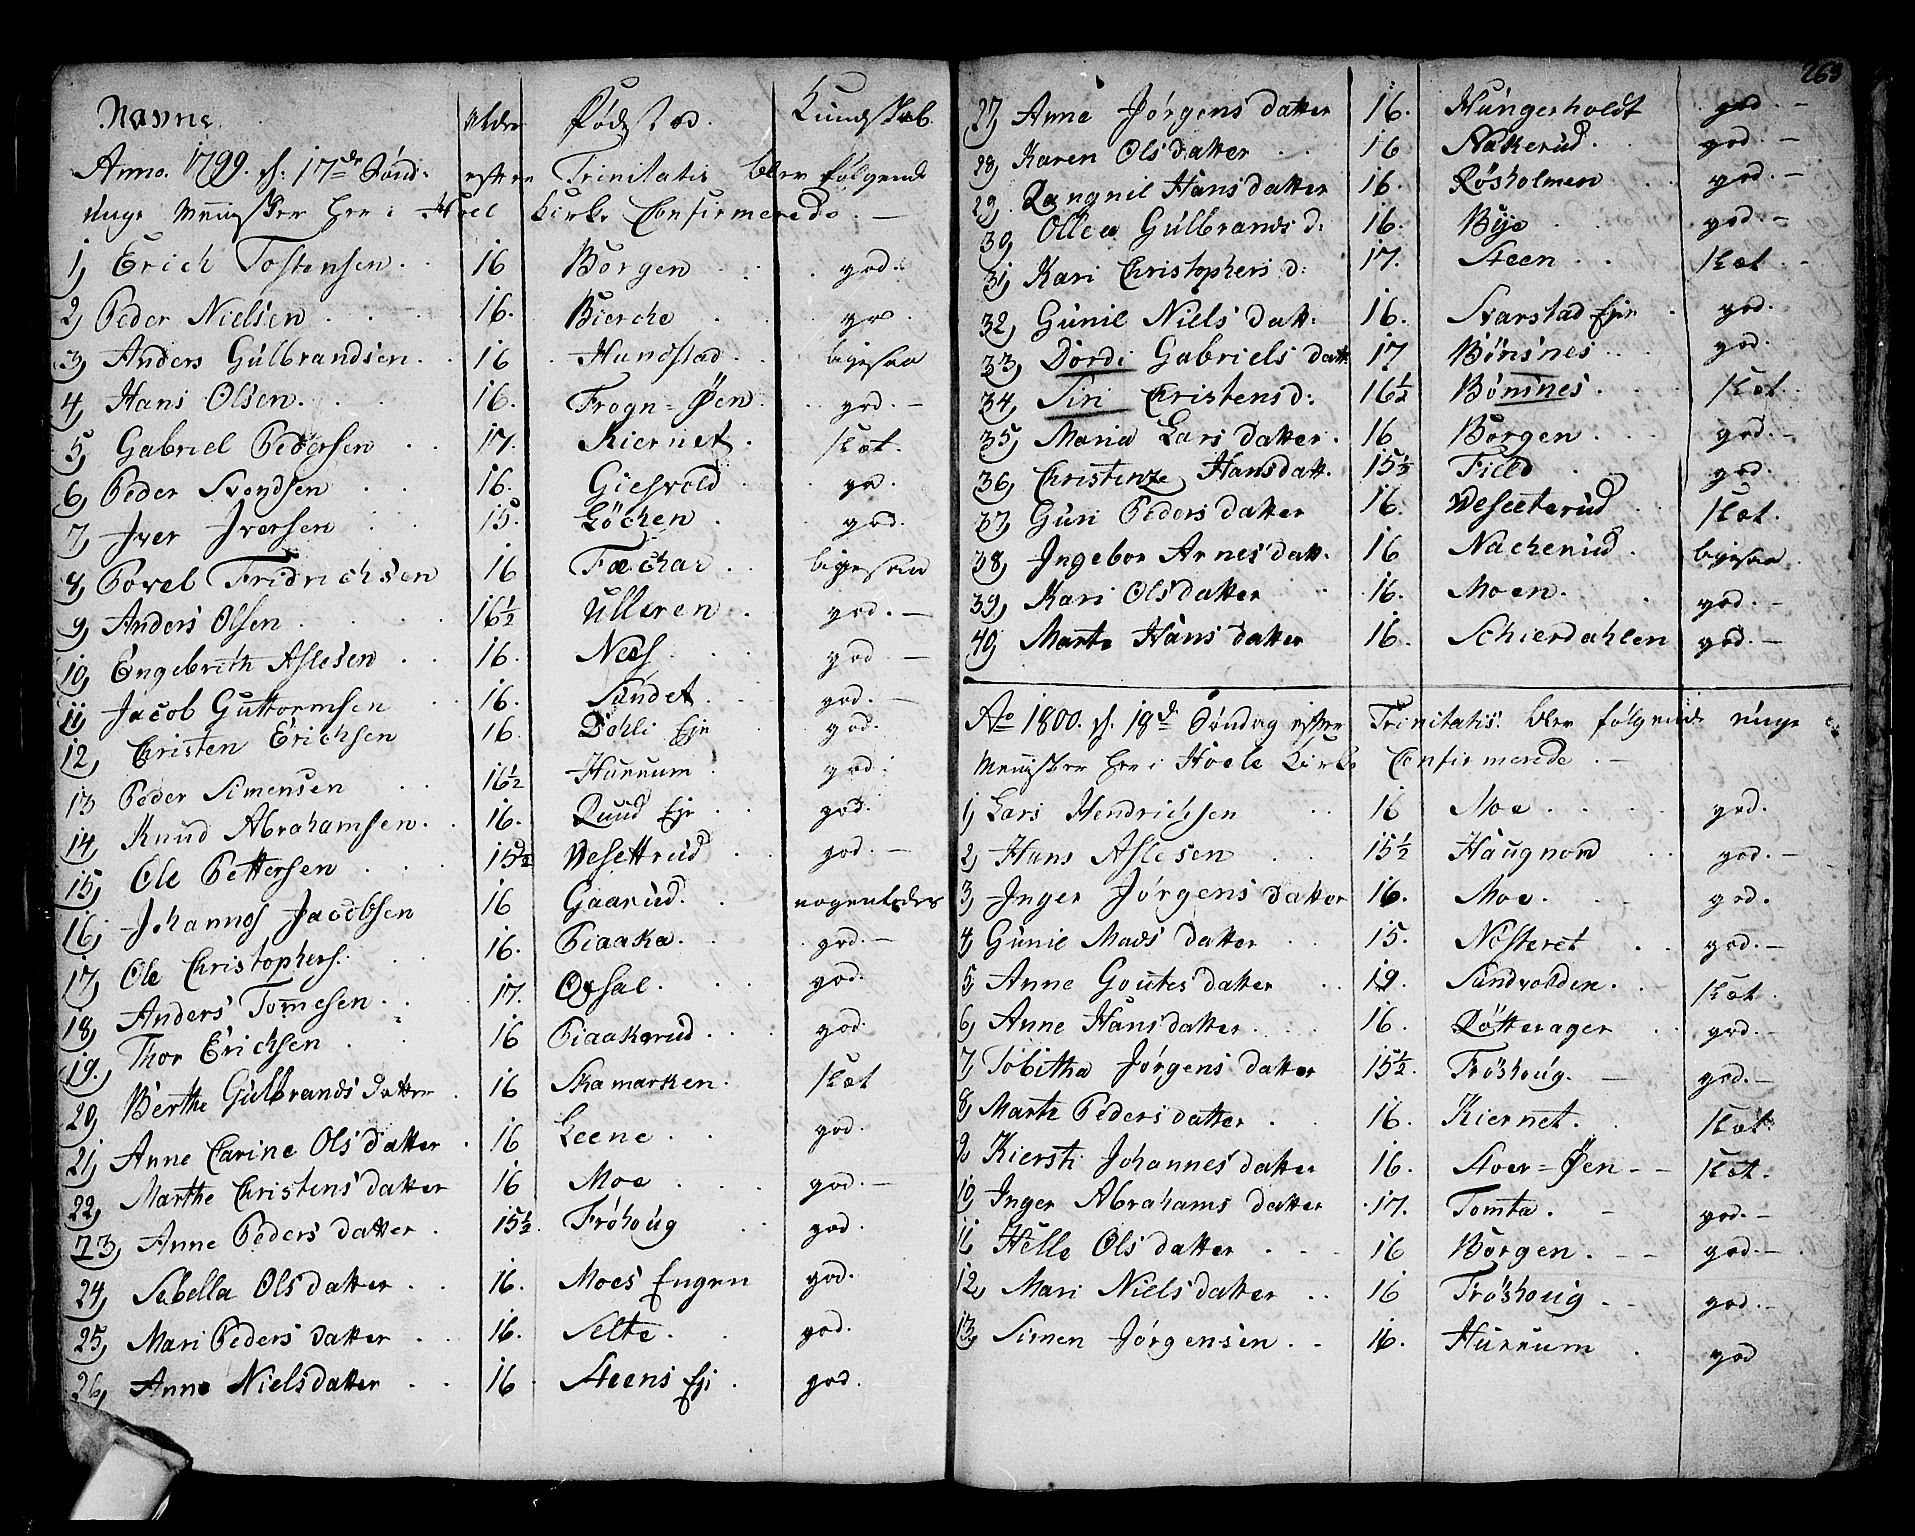 Navne. Alder Fødestæd. Kundskab.
Anno. 1799. d. 17de Sønd: efter Trinitatis blev følgende
unge Mennisker her i Hoel Kirke Confirmerede. —
1, Erich Tostensen. 16 Borgen god.
2, Peder Nielsen 16. Bierche god
3, Anders Gulbrandsen. 16 Hundstad ligesaa
4, Hans Olsen. 16. Frogn=Øen. god. —
5, Gabriel Pedersen 17. Kiernet. slæt.
6, Peder Svendsen 16. Giesvold god.
7, Iver Iversen 15. Løchen god.
8, Povel Fridrichsen 16 Fæchar ligesaa
9, Anders Olsen 16½ Ulleren god. —
10, Engebrith Aslesen 16. Næs god —
11, Jacob Guttormsen 16. Sundet god. —
12, Christen Erichsen 16. Dohli Eje god.
13 Peder Simensen 16½ Hurrum god.
14, Knud Abrahamsen. 16. Ruud Eje god.
15, Ole Pettersen 15½ Vesettrud god. —
16, Johannes Jacobsen 16 Gaarud. nogenledes
17, Ole Christophers. 16. Piaaka. god. —
18, Anders Tomesen. 17. Opsal. god.
19. Thor Erichsen 16 Piaakerud. god.
20, Berthe Gulbrands datter 16 Skamarken. slæt
21, Anne Carine Ols datter 16 Leene god.
22, Marthe Christens datter 16 Moe god. —
23, Anne Peders datter. 15½. Frøhoug god.
24, Sebella Ols datter 16. Moes Engen god.
25, Mari Peders datter 16. Selte. god.
26, Anne Nielsdatter 16 Steens Eje god.
263
27, Anne Jørgens datter 16. Hungerholdt god. —
28, Karen Olsdatter 16 Nakerud. god. —
29, Rangnil Hansdatter 16. Røsholmen god. —
30, Ollea Gulbrands d: 16. Bye god. —
31, Kari Christophers d: 17. Steen slæt
32, Gunil Niels datt. 16. Svarstad Eje god.
33, Dordi Gabriels datt. 17 Bønsnes god.
34, Siri Christensd: 16½ Bønsnes slæt.
35, Maria Lars datter. 16 Borgen god. —
36, Christenze Hansdatt. 15½ Field god.
37, Guri Peders datter 16. Veseeterud slæt.
38, Ingebor Arnes datt. 16 Nacherud. ligesaa
39, Kari Olsdatter 16. Moen. god. —
40, Marte Hans datter 16. Schierdahlen god. —
Ao 1800. d. 18de Søndag efter Trinitatis blev følgende unge
Mennisker her i Hoele Kirke Confirmerede. —
1, Lars Hendrichsen 16 Moe god.
2, Hans Aslesen 15½ Haugnord god. —
3, Inger Jørgens datter 16. Moe. god.
4, Gunil Mads datter 15. Nøsteret god. —
5, Anne Goutes datter 19. Sundvolden. slæt.
6, Anne Hansdatter. 16. Røtterager god. —
7, Tobitha Jørgens datter 15½. Frøshoug. — god. —
8, Marte Peders datter 16. Kiernet. slæt.
9 Kiersti Johannes datter 16. Stoer=Øen slæt.
10, Inger Abrahams datter 17. Tomta. god. —
11, Helle Ols datter 16 Borgen. god. —
12, Mari Nielsdatter 16 Frøshoug god. —
13, Simen Jørgensen 16. Hurrum god